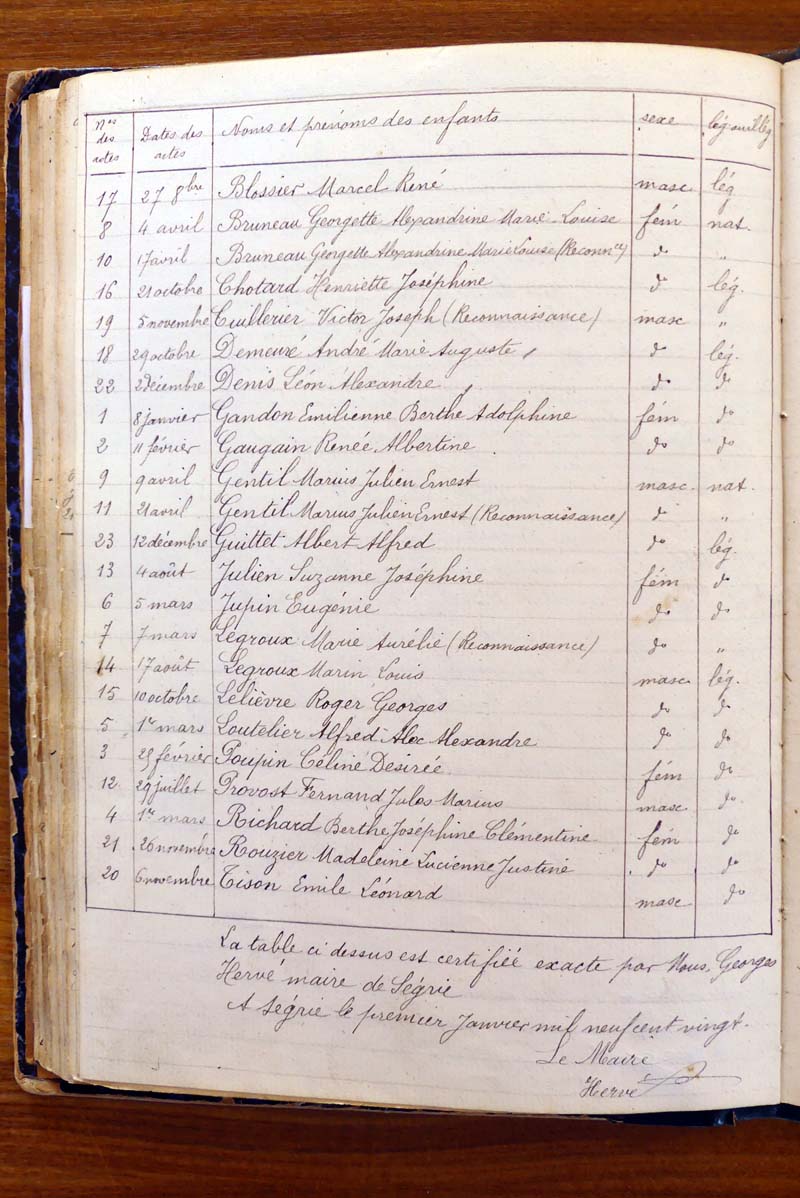 Nos des actes Dates des actes Noms et prénoms des enfants sexe lég ou illég
17 27 8bre Blossier Marcel René masc lég
8 4 avril Bruneau Georgette Alexandrine Marie Louise fém nat.
10 17 avril Bruneau Georgette Alexandrine Marie Louise (Reconnce) do "
16 21 octobre Chotard Henriette Joséphine do lég.
19 5 novembre Cuillerier Victor Joseph (Reconnaissance) masc "
18 29 octobre Demeuré André Marie Auguste do lég.
22 2 Décembre Denis Léon Alexandre do do
1 8 janvier Gandon Emilienne Berthe Adolphine fém do
2 11 février Gaugain Renée Albertine do do
9 9 avril Gentil Marius Julien Ernest masc. nat.
11 21 avril Gentil Marius Julien Ernest (Reconnaissance) do "
23 12 décembre Guittet Albert Alfred do lég.
13 4 août Julien Suzanne Joséphine fém do
6 5 mars Jupin Eugénie do do
7 7 mars Legroux Marie Aurélie (Reconnaissance) do "
14 17 août Legroux Marin Louis masc lég.
15 10 octobre Lelièvre Roger Georges do do
5 1er mars Loutelier Alfred Alex Alexandre do do
3 25 février Poupin Céline Desirée fém do
12 29 juillet Provost Fernand Jules Marius masc do
4 1er mars Richard Berthe Joséphine Clémentine fém do
21 26 novembre Rouzier Madeleine Lucienne Justine do do
20 6 novembre Tison Emile Léonard masc do
La table ci dessus est certifiée exacte par Nous, Georges
Hervé maire de Ségrie
A Ségrie le premier Janvier mil neuf cent vingt.
Le Maire
Hervé